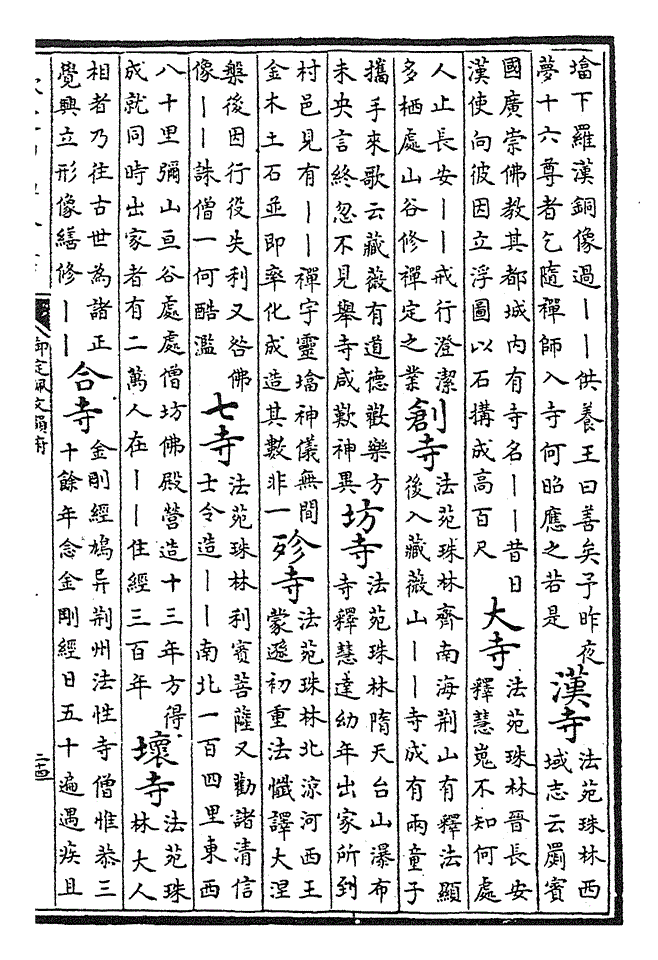 墖下羅漢銅像過丨丨供養王曰善矣予昨夜
夢十六尊者乞隨禪師入寺何昭應之若是
漢寺
法苑珠林西
域志云罽賓
國廣崇佛教其都城内有寺名丨丨昔日
漢使向彼因立浮圖以石搆成高百尺
大寺
法苑珠林晉長安
釋慧嵬不知何處
人止長安丨丨戒行澄潔
多栖處山谷修禪定之業
創寺
法苑珠林齊南海荆山有釋法顯
後入藏薇山丨丨寺成有兩童子
攜手來歌云藏薇有道德歡樂方
未央言終忽不見舉寺咸歎神異
坊寺
法苑珠林隋天台山瀑布
寺釋慧達幼年出家所到
村邑見有丨丨禪宇靈墖神儀無間
金木土石並即率化成造其數非一
殄寺
法苑珠林北涼河西王
蒙遜初重法懺譯大涅
槃後因行役失利又咎佛
像丨丨誅僧一何酷濫
七寺
法苑珠林利賓菩薩又勸諸清信
士令造丨丨南北一百四里東西
八十里彌山亘谷處處僧坊佛殿營造十三年方得
成就同時出家者有二萬人在丨丨住經三百年
壞寺
法苑珠
林大人
相者乃往古世為諸正
覺興立形像繕修丨丨
合寺
金剛經鳩异荆州法性寺僧惟恭三
十餘年念金剛經日五十遍遇疾且
御定佩文韻府